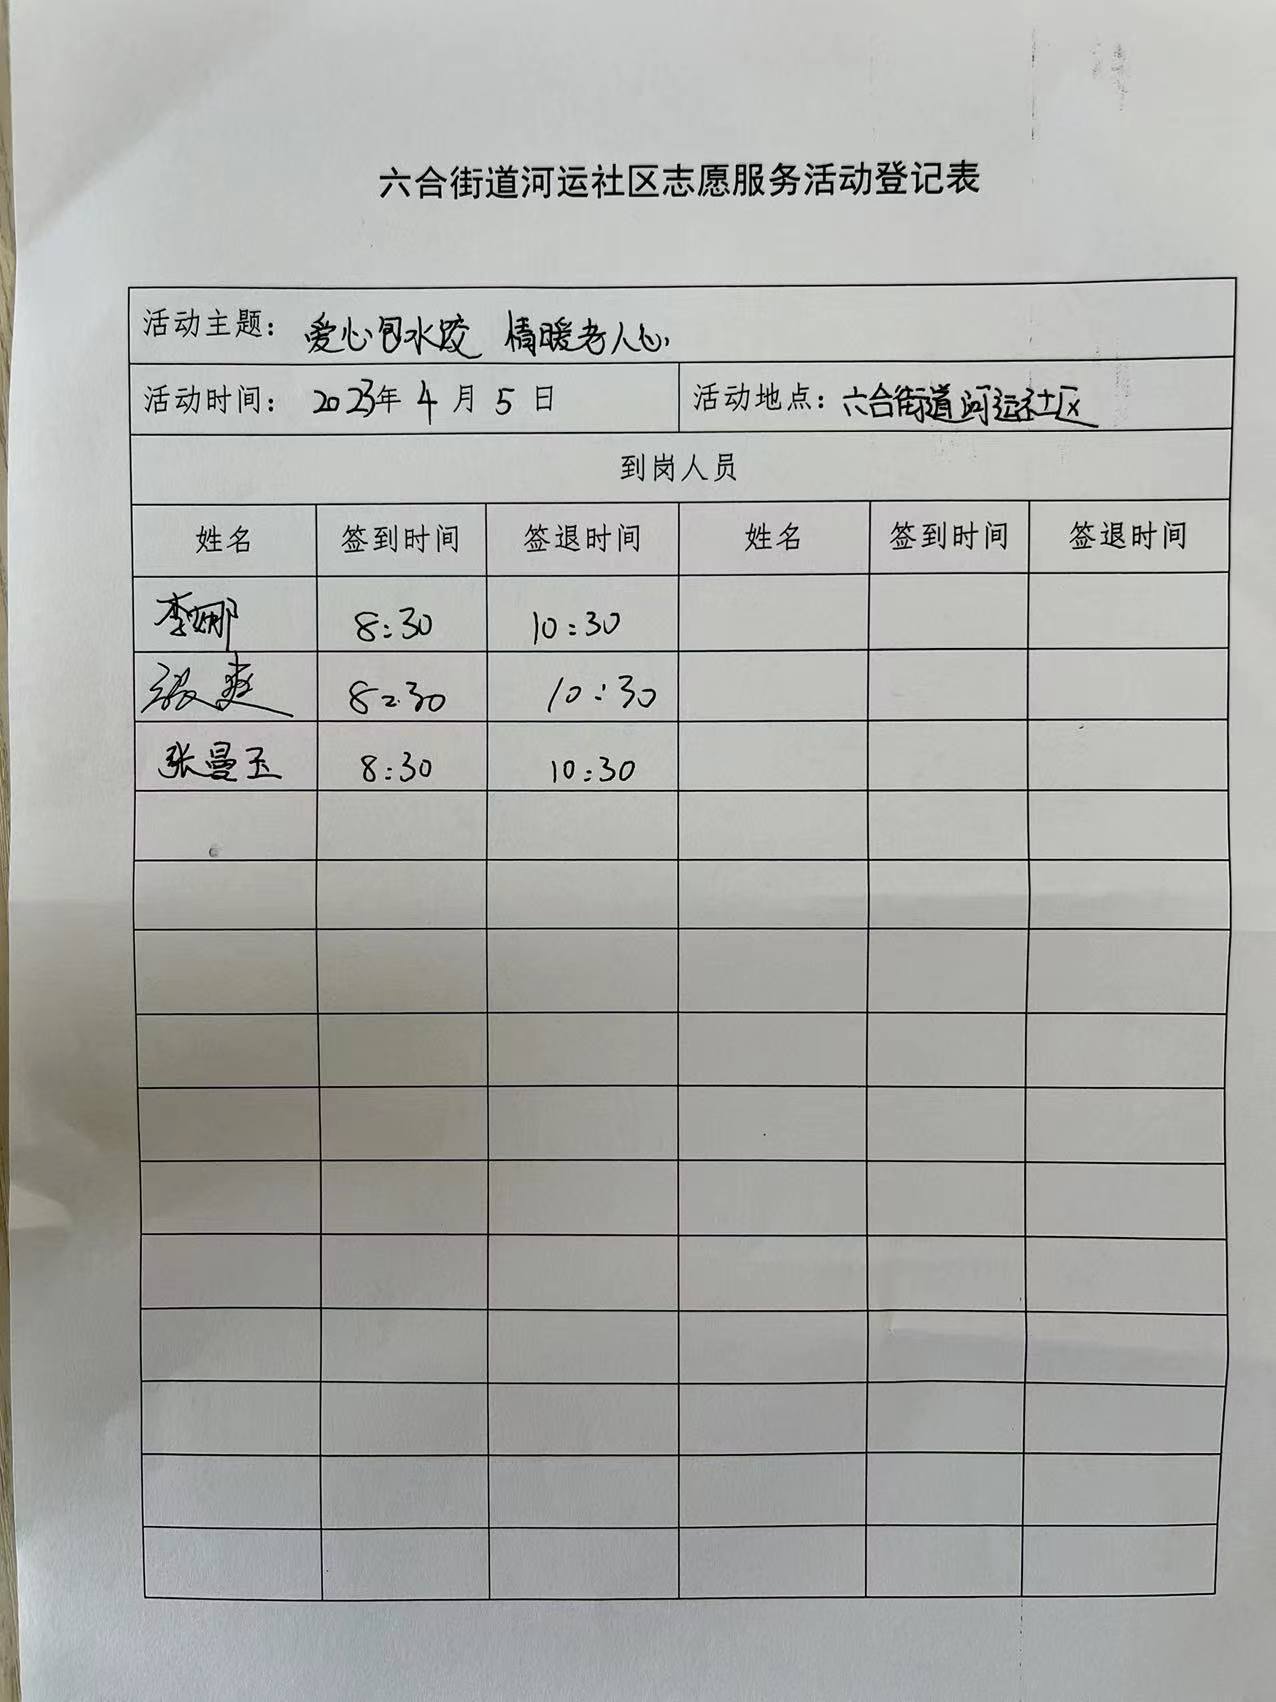 六合街道河运社区志愿服务活动登记表
活动主题：爱心包水饺 情暖老人心
活动时间：2023年4月5日 活动地点：六合街道河运社区
到岗人员
姓名 签到时间 签退时间 姓名 签到时间 签退时间
李娜 8:30 10:30
张爽 8:30 10:30
张曼玉 8:30 10:30